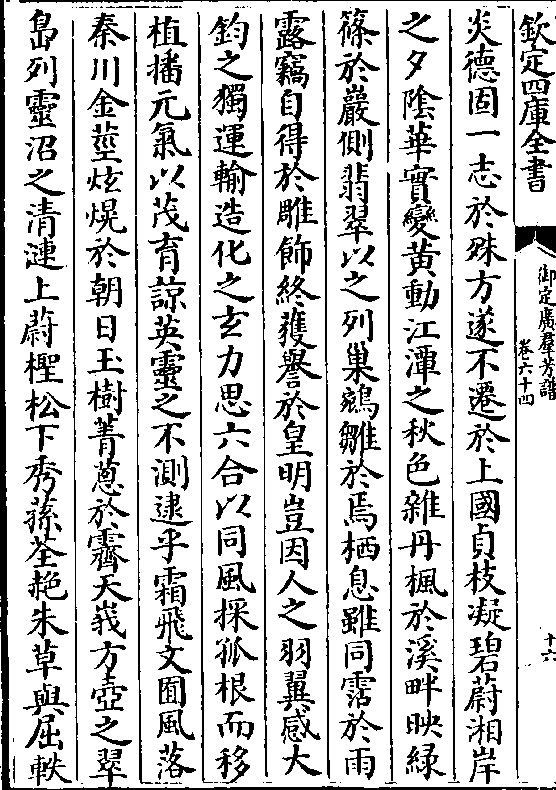 欽定四庫全書
御定廣羣芳譜
卷六十四
十六
炎德固一志於殊方遂不遷於上國貞枝凝碧蔚湘岸
之夕陰華實變黄動江潭之秋色雜丹楓於溪畔映緑
篠於巖側翡翠以之列巢鵷雛於焉栖息雖同霑於雨
露竊自得於雕飾終獲譽於皇明豈因人之羽翼感大
鈞之獨運輸造化之玄力思六合以同風採孤根而移
植播元氣以茂育諒英靈之不測逮乎霜飛文囿風落
秦川金莖炫熀於朝日玉樹菁葱於霽天峩方壺之翠
島列靈沼之清漣上蔚檉松下秀蓀荃赩朱草與屈軼